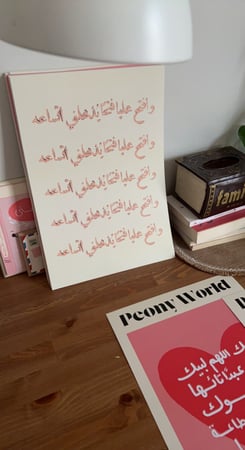 وافتح علينا فتحًا يذهلني اتساعه
وافتح علينا فتحًا يذهلني اتساعه
وافتح علينا فتحًا يذهلني اتساعه
وافتح علينا فتحًا يذهلني اتساعه
وافتح علينا فتحًا يذهلني اتساعه
fami
Peony World
اللهم لبيك
عبدًا تائهًا